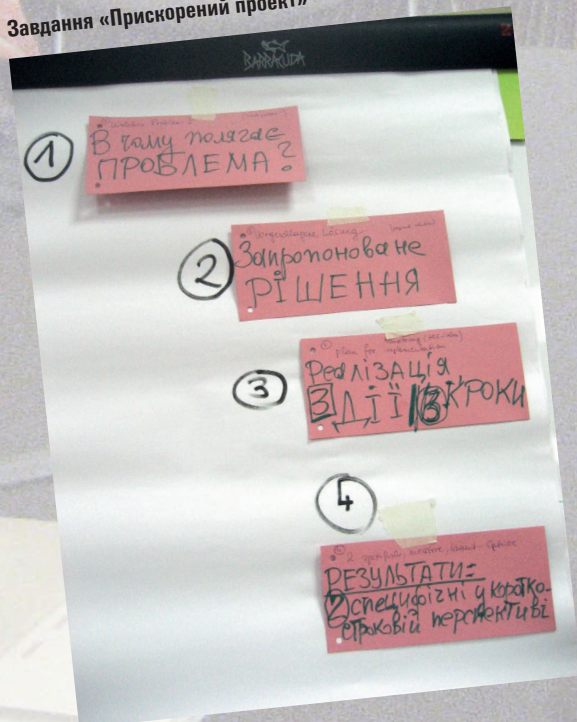 Завдання «Прискорений проект»
BARRACUDA
1
В чому полягає
ПРОБЛЕМА?
2
Запропоноване
РІШЕННЯ
3
plan for implementation
Реалізація
3 ДІЇ / 3 КРОКИ
4
РЕЗУЛЬТАТИ:
2 специфічні у коротко-
строковій перспективі